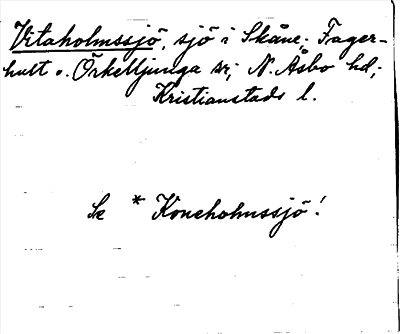 Vitaholmssjö, sjö i Skåne; Fager-
hult o. Örkelljunga sr; N. Åsbo hd;
Kristianstads l.
Se * Koneholmssjö!